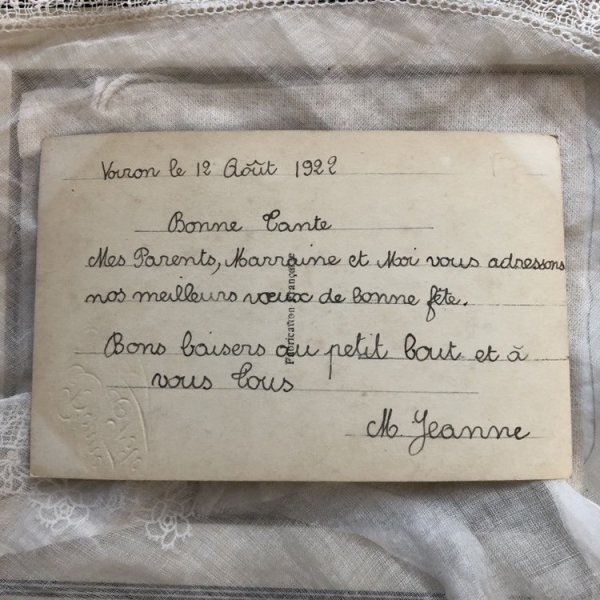 Voiron le 12 Août 1922
Bonne Tante
Mes Parents, Marraine et Moi vous adressons
nos meilleurs vœux de bonne fête.
Bons baisers au petit bout et à
vous tous
M. Jeanne
Fabrication Française